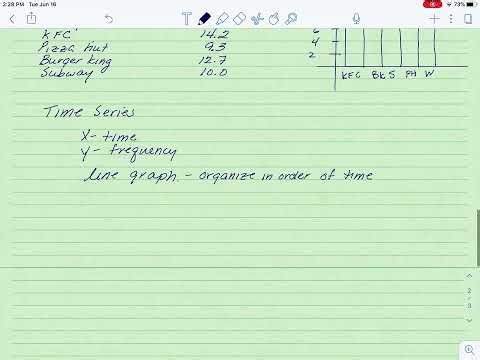 2:28 PM Tue Jun 16
73%
KFC 14.2
Pizza Hut 9.3
Burger King 12.7
Subway 10.0
6
4
2
KFC BK S PH W
Time Series
X- time
Y- frequency
line graph - organize in order of time
2
3